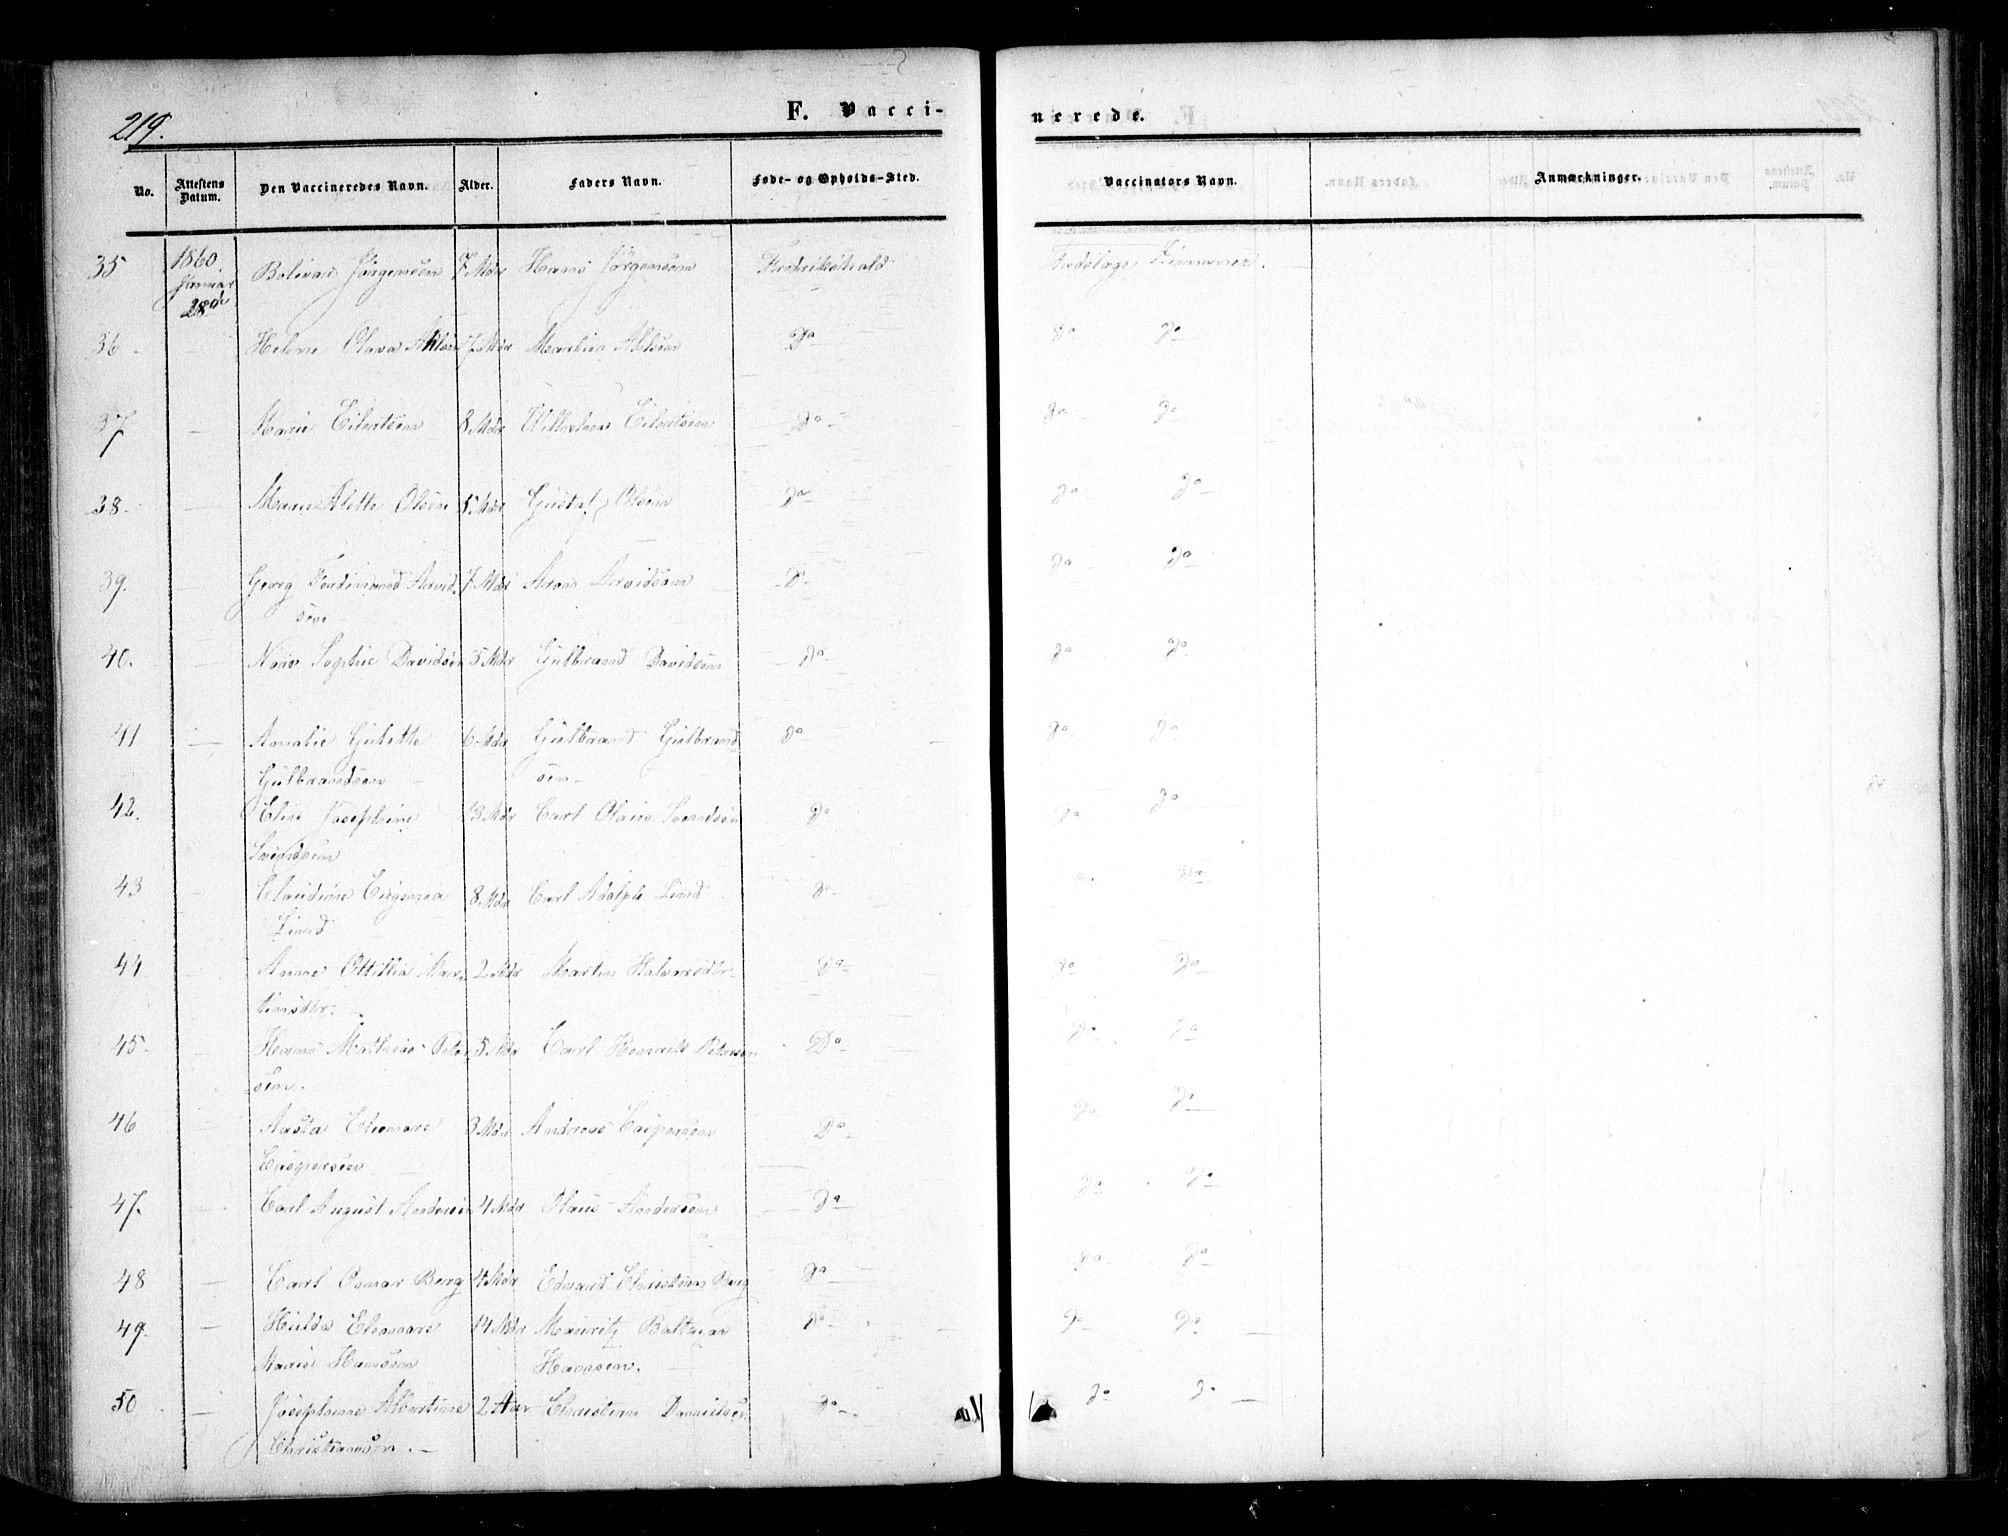 219.
F. Vacci-
nerede.
No. Attestens Datum. Den Vaccineredes Navn. Alder. Faders Navn. Føde- og Opholds-Sted. Vaccinators Navn. Anmærkninger.
35 1860. Januar 28de Bolivar Jörgensen 7 Mdr Hans Jörgensen Fredrikshald
36 - Helene Olava 7 Mdr Martin Do
37 - Marie Eilertsen 8 Mdr Wilhelm Eilertsen do do do
38. - Maren Alette Olsen 5 Mdr Gustaf Olsen do do do
39. - Georg Ferdinand Arvid- 7 Mdr Aron Arvidsen Do do do
sen
40. - Sophie Davidsen 5 Mdr Gulbrand Davidsen do do do
41 - Amalie Gulette 6 Mdr Gulbrand Gulbrand- do do do
Gulbrandsen sen
42. Elise Josephine 13 Mdr Carl Olaus Svendsen do do do
Svendsen
43 - Claudine 8 Mdr Carl Adolph Lind do do do
Lind
44 - Anne Ottillia Mar- 2 Mdr Martin Do do do
tinsdtr.
45. - Hans Mathias Peter- 5 Mdr Carl Henrik Petersen Do do do
sen.
46 - Aasta Eleonore 3 Mdr Andreas Caspersen Do do do
Caspersen
47. - Carl August Andersen 4 Mdr Olaus Andersen do do do
48 - Carl Oscar Berg 4 Mdr Edvard Christian Berg do do do
49. - Hulda Eleonore 14 Mdr Mauritz Baltzar do do do
Marie Hansen Hansen.
50 - Josephine Albertine 2 Aar Christian Danielsen do do do
Christiansen.